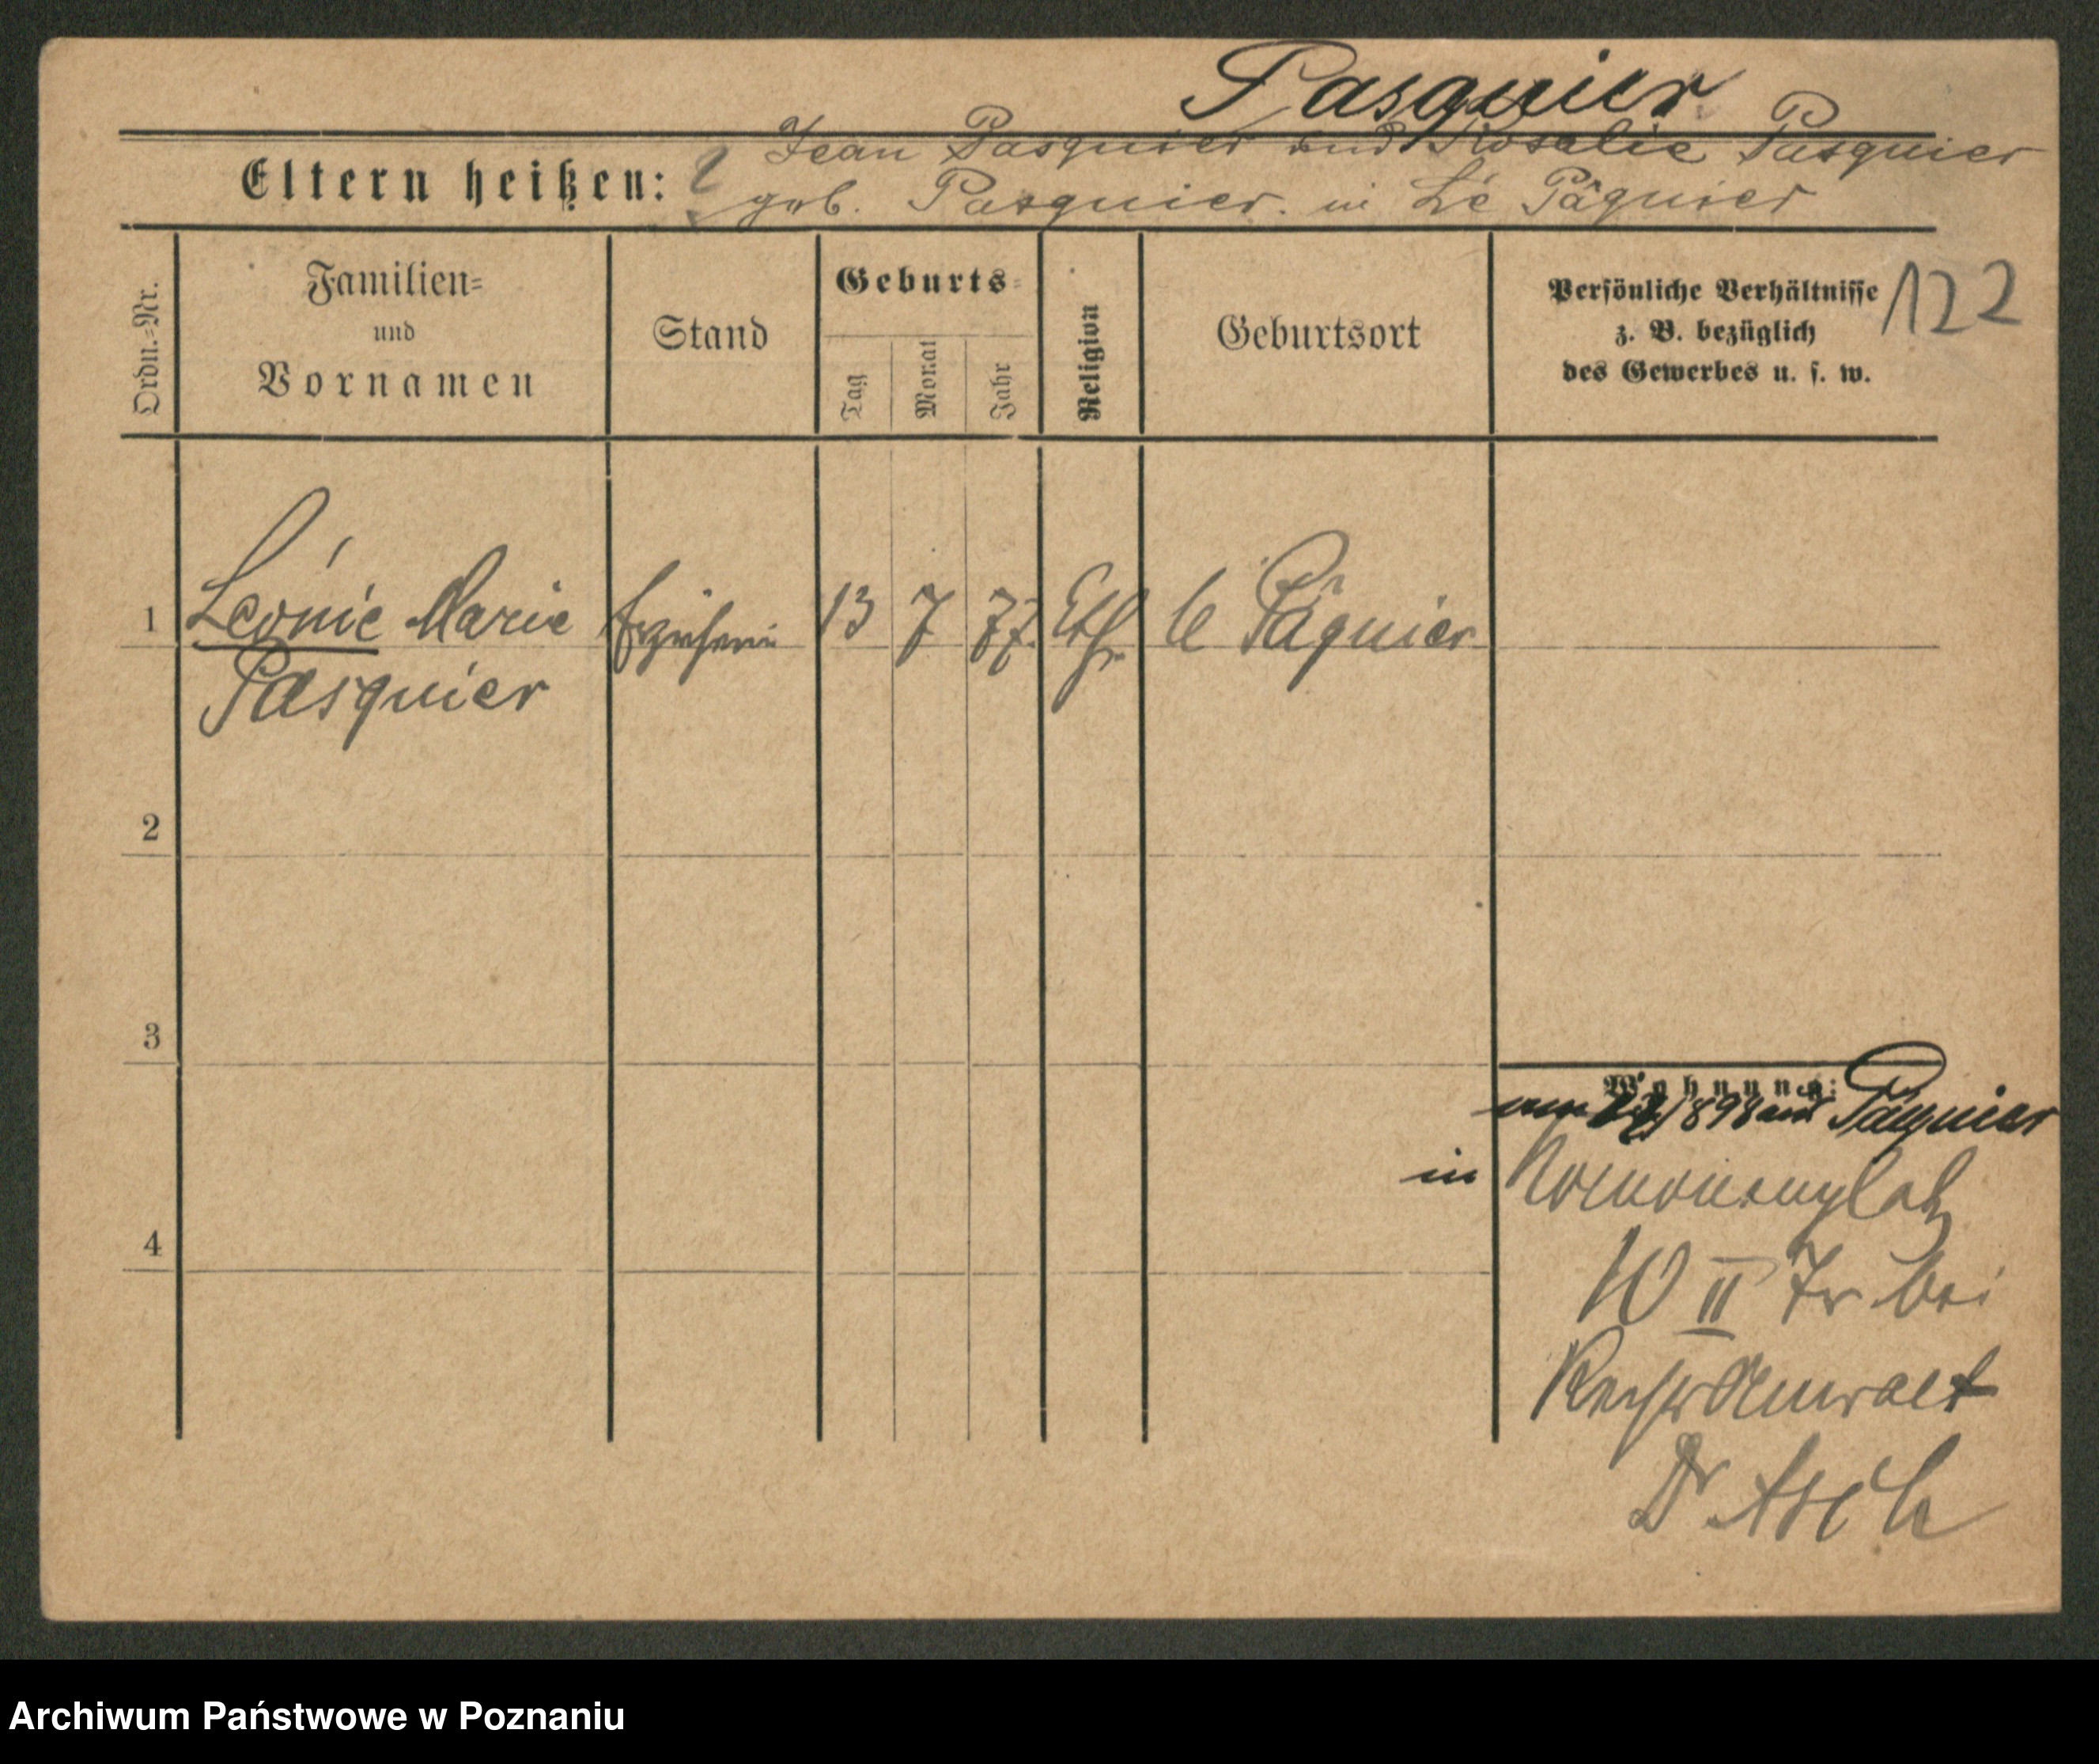 Pasquier
Eltern heißen: Jean Pasquier und Rosalie Pasquier
geb. Pasquier. in Le Pâquier
122
Ordn.=Nr.
Familien=
und
Vornamen
Stand
Geburts=
Tag
Monat
Jahr
Religion
Geburtsort
Persönliche Verhältnisse
z. B. bezüglich
des Gewerbes u. s. w.
1 Léonie Marie Erzieherin 13 7 77. Kth. le Pâquier
Pasquier
2
3
4
Wohnung:
898 aus Pâquier
in
II Tr bei
RechtsAnwalt
Dr. Asch
Archiwum Państwowe w Poznaniu